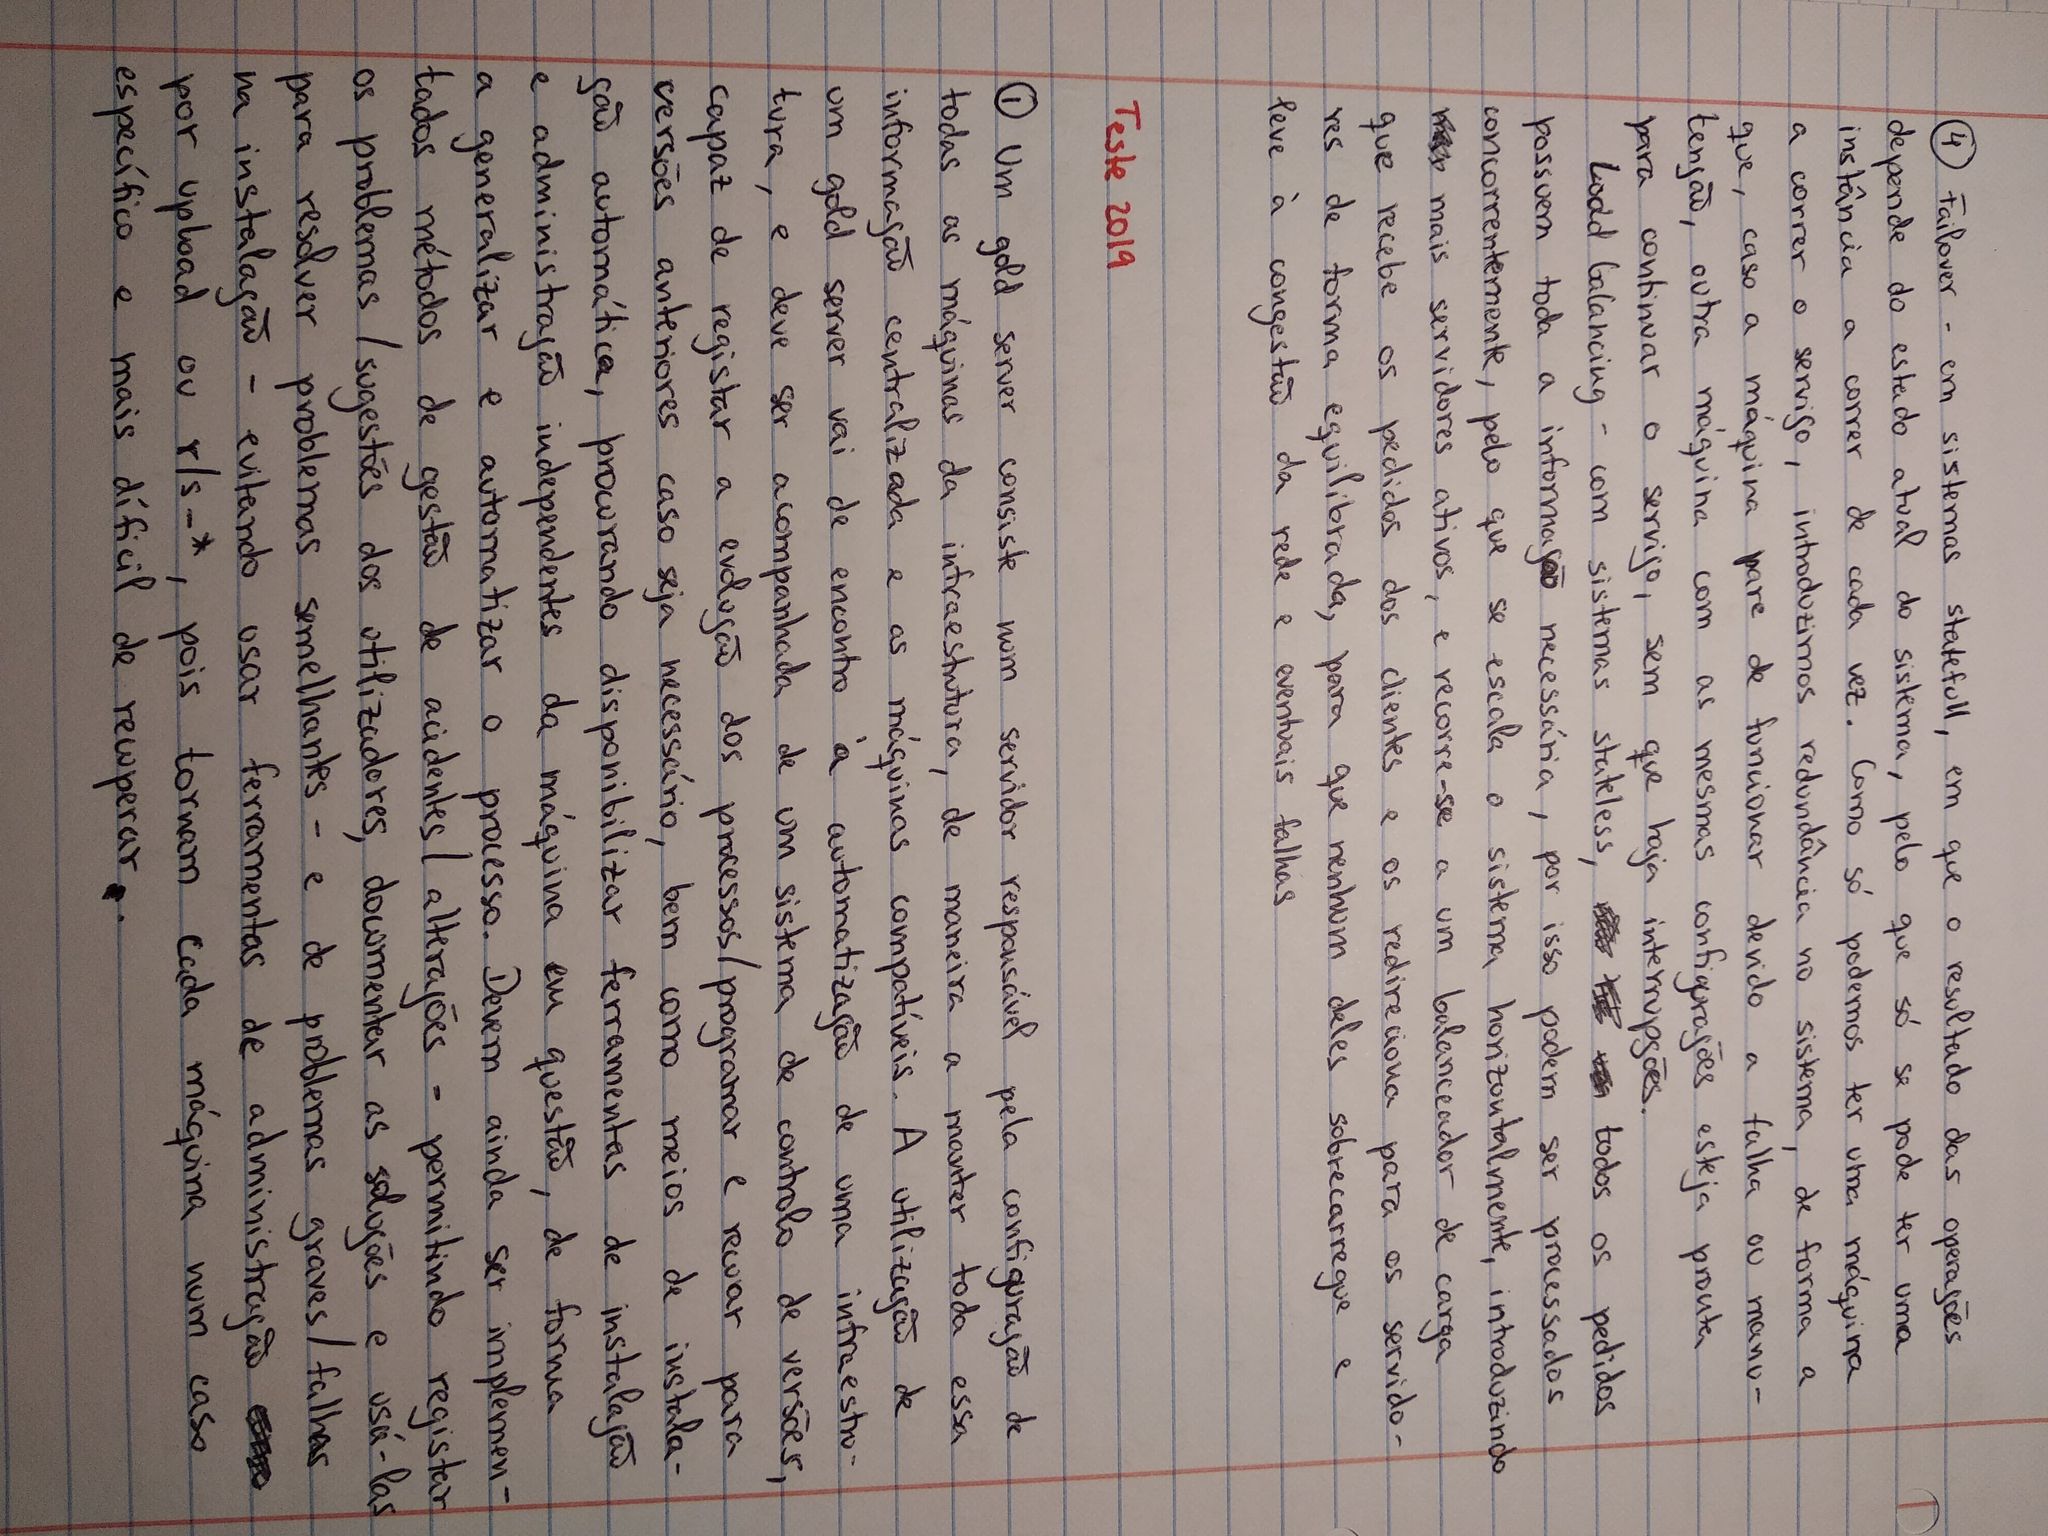 ④ Failover - em sistemas statefull, em que o resultado das operações
depende do estado atual do sistema, pelo que só se pode ter uma
instância a correr de cada vez. Como só podemos ter uma máquina
a correr o serviço, introduzimos redundância no sistema, de forma a
que, caso a máquina pare de funcionar devido a falha ou manu-
tenção, outra máquina com as mesmas configurações esteja pronta
para continuar o serviço, sem que haja interrupções.
Load balancing - com sistemas stateless, todos os pedidos
possuem toda a informação necessária, por isso podem ser processados
concorrentemente, pelo que se escala o sistema horizontalmente, introduzindo
mais servidores ativos, e recorre-se a um balanceador de carga
que recebe os pedidos dos clientes e os redireciona para os servido-
res de forma equilibrada, para que nenhum deles sobrecarregue e
leve à congestão da rede e eventuais falhas
Teste 2019
① Um gold server consiste num servidor responsável pela configuração de
todas as máquinas da infraestrutura, de maneira a manter toda essa
informação centralizada e as máquinas compatíveis. A utilização de
um gold server vai de encontro à automatização de uma infraestru-
tura, e deve ser acompanhada de um sistema de controlo de versões,
capaz de registar a evolução dos processos/programar e recuar para
versões anteriores caso seja necessário, bem como meios de instala-
ção automática, procurando disponibilizar ferramentas de instalação
e administração independentes da máquina em questão, de forma
a generalizar e automatizar o processo. Devem ainda ser implemen-
tados métodos de gestão de acidentes/alterações - permitindo registar
os problemas/sugestões dos utilizadores, documentar as soluções e usá-las
para resolver problemas semelhantes - e de problemas graves/falhas
na instalação - evitando usar ferramentas de administração
por upload ou r/s-*, pois tornam cada máquina num caso
específico e mais díficil de recuperar.